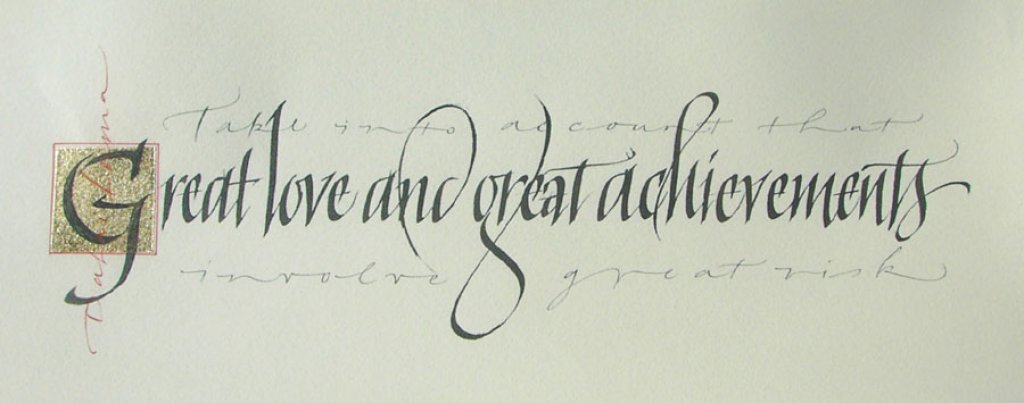 Take into account that
Great love and great achievements
involve great risk